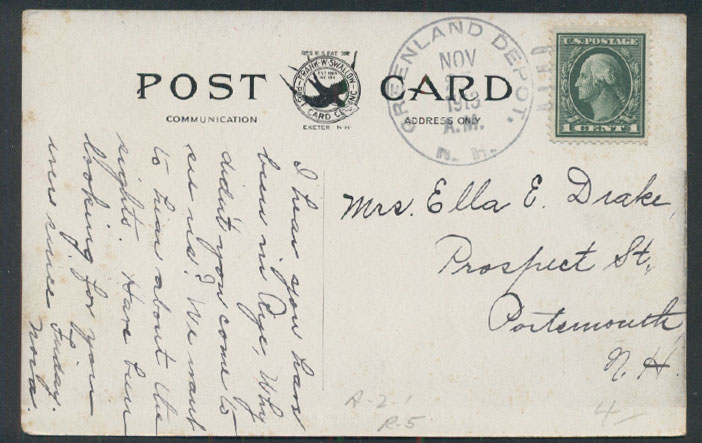 POST CARD
REG U.S. PAT. OFF.
FRANK W. SWALLOW
POST CARD CO. INC.
EXETER N-H
COMMUNICATION
ADDRESS ONLY
GREENLAND DEPOT,
NOV
1913
A.M.
N. H.
U.S. POSTAGE
1 CENT 1
I hear you have
been in Rye, Why
didn't you come to
see us? We want
to hear about the
sights. Have been
looking for you
ever since Friday.
Nora.
Mrs. Ella E. Drake,
Prospect St,
Portsmouth
N.H.
A-2
R-5
4-